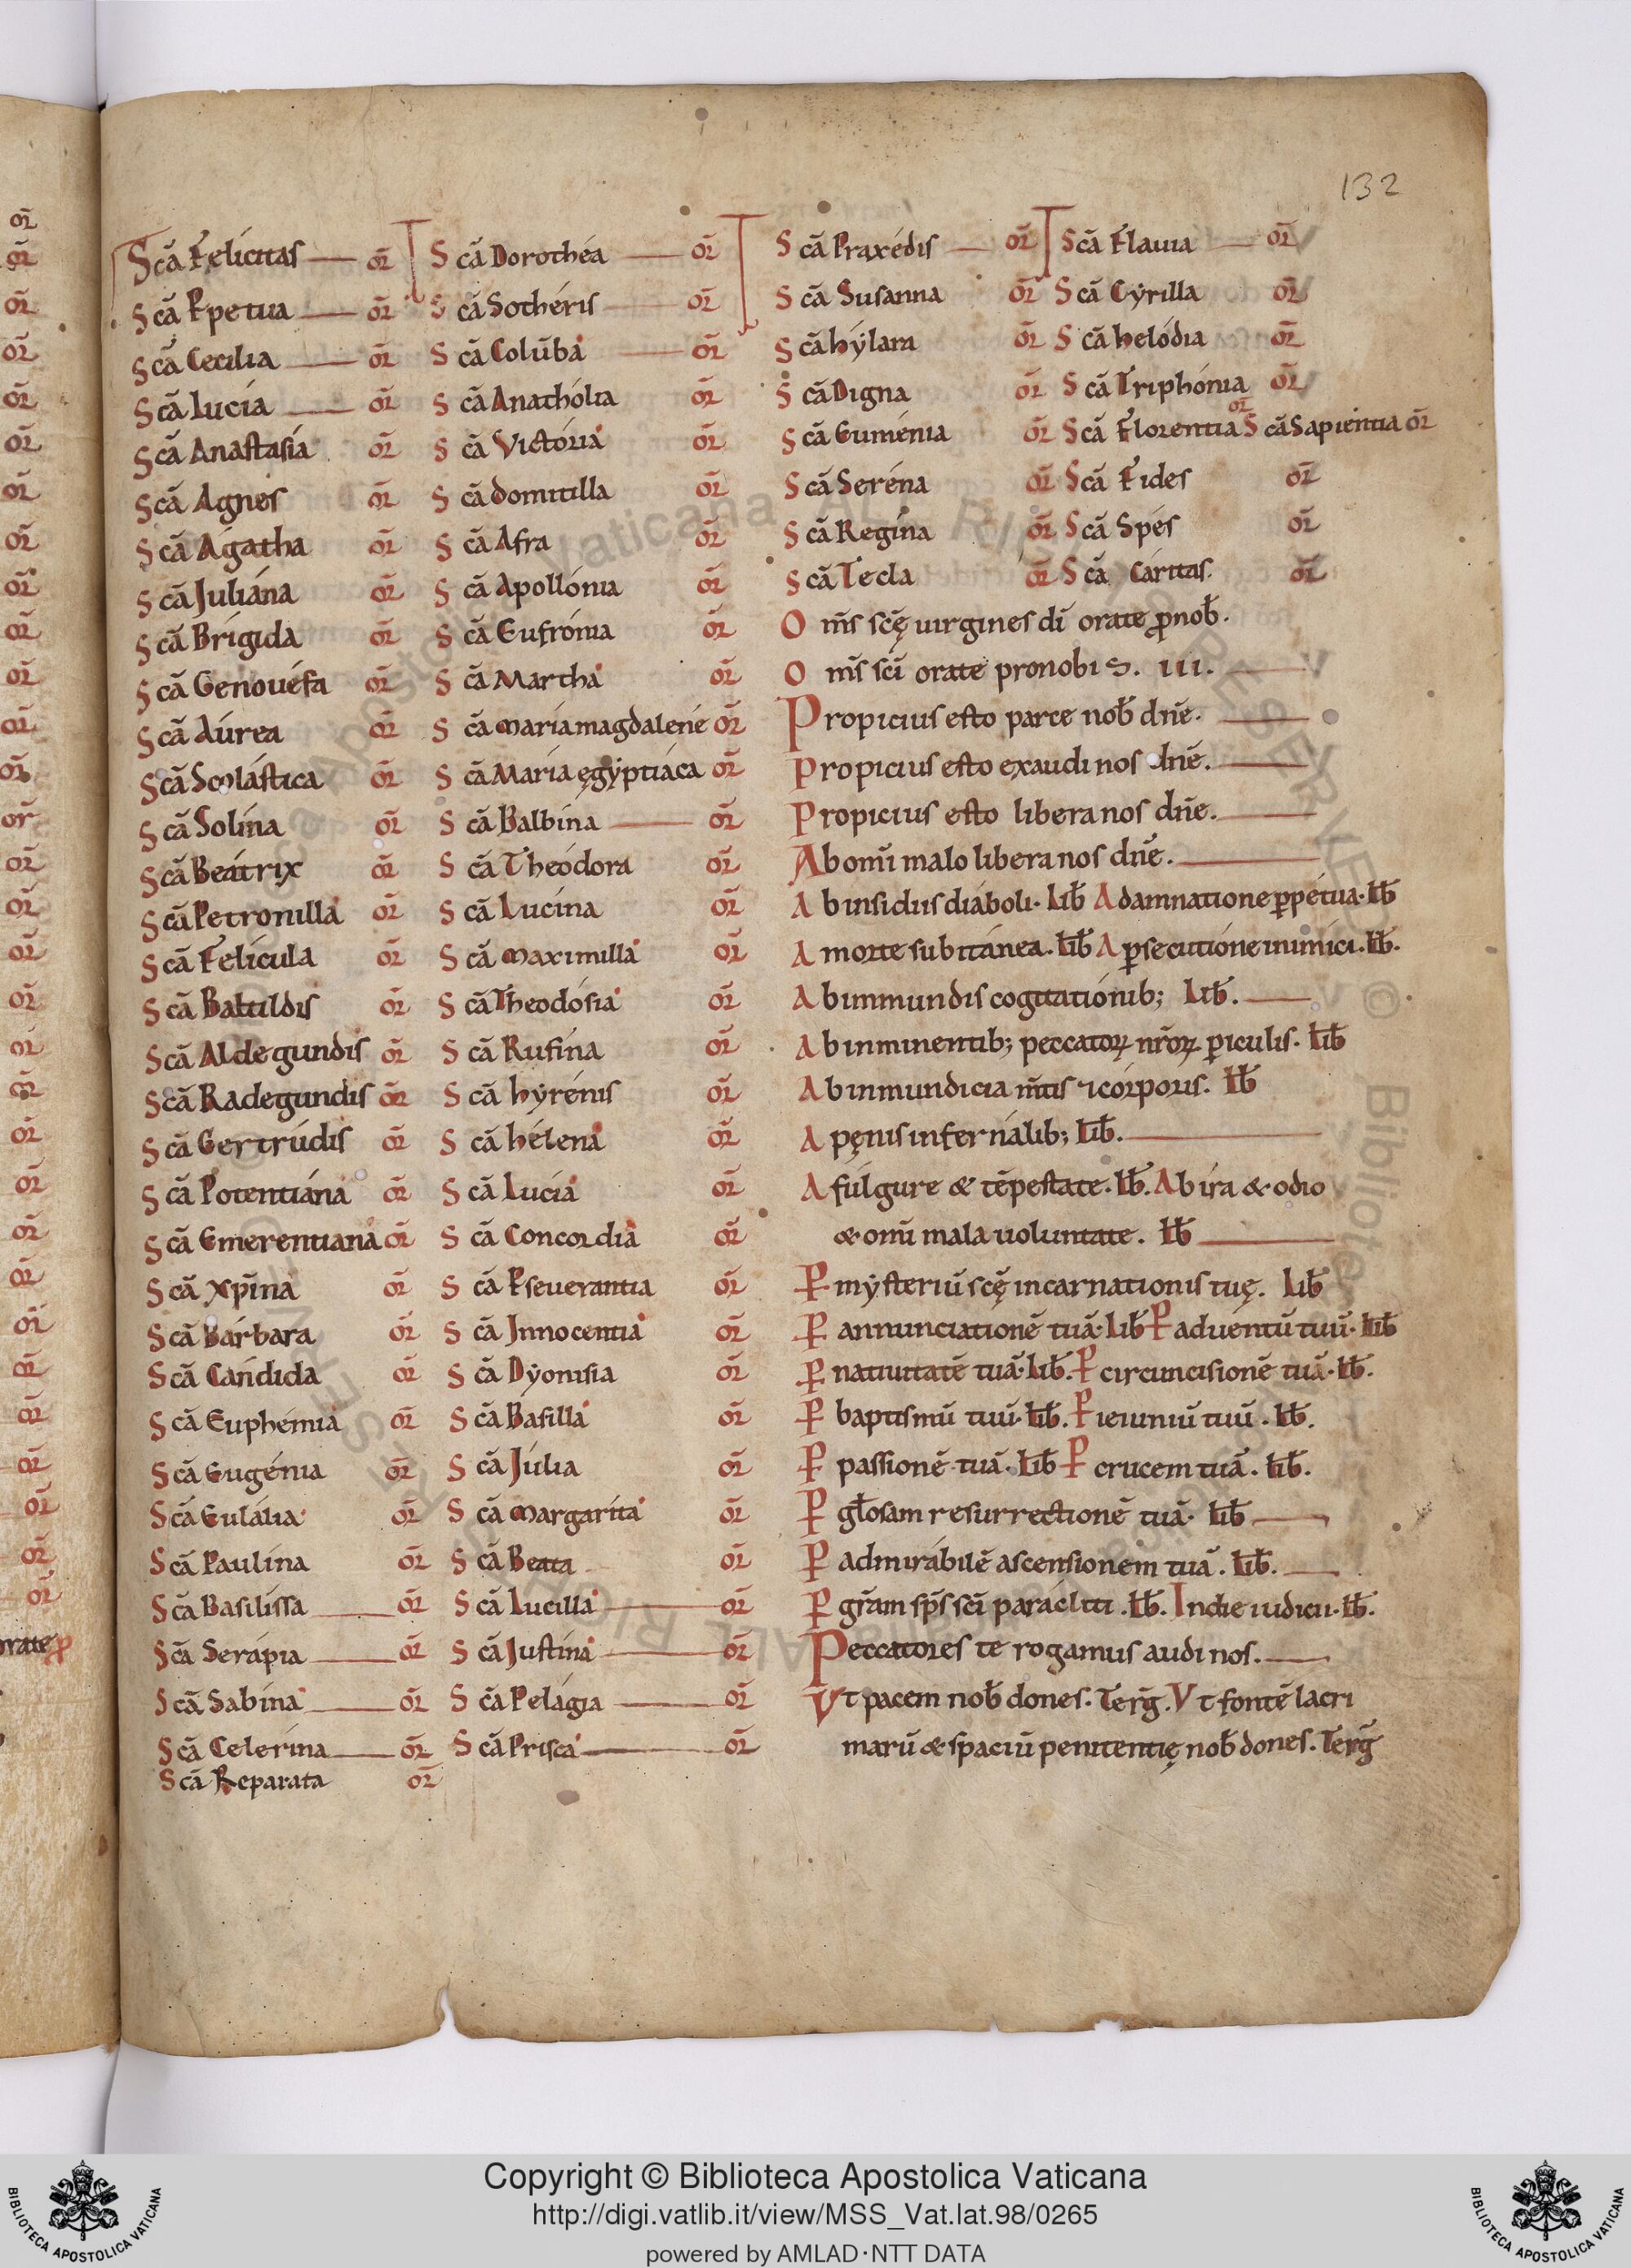 132
Scã Felícitas or̃
Scã Ꝑpetua or̃
Scã Cecilia or̃
Scã Lucía or̃
Scã Anastasía or̃
Scã Agnes or̃
Scã Ágatha or̃
Scã Juliána or̃
Scã Brígida or̃
Scã Genouéfa or̃
Scã Áurea or̃
Scã Scolástica or̃
Scã Solína or̃
Scã Beátrix or̃
Scã Petronilla or̃
Scã Felícula or̃
Scã Baltildis or̃
Scã Aldegundis or̃
Scã Radegundis or̃
Scã Gertrúdis or̃
Scã Potentiána or̃
Scã Emerentiana or̃
Scã Xp̃ína or̃
Scã Bárbara or̃
Scã Cándida or̃
Scã Euphémia or̃
Scã Eugénia or̃
Scã Eulália or̃
Scã Paulína or̃
Scã Basilissa or̃
Scã Serápia or̃
Scã Sabína or̃
Scã Celerína or̃
Scã Reparata or̃
Scã Dorothéa or̃
Scã Sothéris or̃
Scã Colũba or̃
Scã Anathólia or̃
Scã Victória or̃
Scã domitilla or̃
Scã Afra or̃
Scã Apollónia or̃
Scã Eufrónia or̃
Scã Martha or̃
Scã maría magdalene or̃
Scã María ęgýptiáca or̃
Scã Balbína or̃
Scã Theódora or̃
Scã Lucína or̃
Scã maximilla or̃
Scã Theodósia or̃
Scã Rufína or̃
Scã hyrénis or̃
Scã hélena or̃
Scã Lucía or̃
Scã Concordia or̃
Scã Ꝑseuerantia or̃
Scã Jnnocentia or̃
Scã Dyonisia or̃
Scã Basilla or̃
Scã Júlia or̃
Scã margaríta or̃
Scã Beata or̃
Scã Lucilla or̃
Scã Justína or̃
Scã Pelágia or̃
Scã Prisca or̃
Scã Praxédis or̃ Scã Flauia or̃
Scã Susanna or̃ Scã Cyrilla or̃
Scã hýlara or̃ Scã helódia or̃
Scã Digna or̃ Scã Triphónia or̃
Scã Euménia or̃ Scã Florentia or̃ Scã Sapientia or̃
Scã Seréna or̃ Scã Fides or̃
Scã Regína or̃ Scã Spés or̃
Scã Tecla or̃ Scã Cáritas or̃
Om̃s scę̃ uirgines dĩ orate ꝓ nob̃.
Om̃s scĩ orate pro nobis. III.
Propicius esto parce nob̃ dñe.
Propicius esto exaudi nos dñe.
Propicius esto libera nos dñe.
Ab omĩ malo libera nos dñe.
Ab insidiis diáboli. lib̃ A damnatione ꝑpétua. lib̃
A morte subitánea. lib̃ A ꝑsecutióne inimíci. lib̃.
Ab immundis cogitatiónib; Lib̃.
Ab inminentib; peccatoꝝ nr̃oꝝ ꝑiculis. lib̃
Ab inmundicia m̃tis ⁊ córporis. lib̃
A pęnis infernálib; lib̃.
A fúlgure & tẽpestate. lib̃. Ab íra & odio
& omĩ mala uoluntate. lib̃
Ꝑ mysteriũ scę̃ incarnationis tuę. Lib̃
Ꝑ annunciationẽ tuã. lib̃ Ꝑ aduentũ tuũ. lib̃
Ꝑ natiuitatẽ tuã. lib̃. Ꝑ circuncisionẽ tuã. lib̃.
Ꝑ baptismũ tuũ. lib̃. Ꝑ ieiuniũ tuũ. lib̃.
Ꝑ passionẽ tuã. lib̃ Ꝑ crucem tuã. lib̃.
Ꝑ gl̃osam resurrectionẽ tuã. lib̃
Ꝑ admirábilẽ ascensionem tuã. lib̃.
Ꝑ gr̃am sp̃s scĩ parácliti. lib̃. In die iudicii. lib̃.
Peccatores te rogamus audi nos.
Vt pacem nob̃ dones. Terg̃. Vt fontẽ lacri
marũ & spaciũ penitentię nob̃ dones. Terg̃
Copyright © Biblioteca Apostolica Vaticana
http://digi.vatlib.it/view/MSS_Vat.lat.98/0265
powered by AMLAD·NTT DATA
BIBLIOTECA APOSTOLICA VATICANA
BIBLIOTECA APOSTOLICA VATICANA